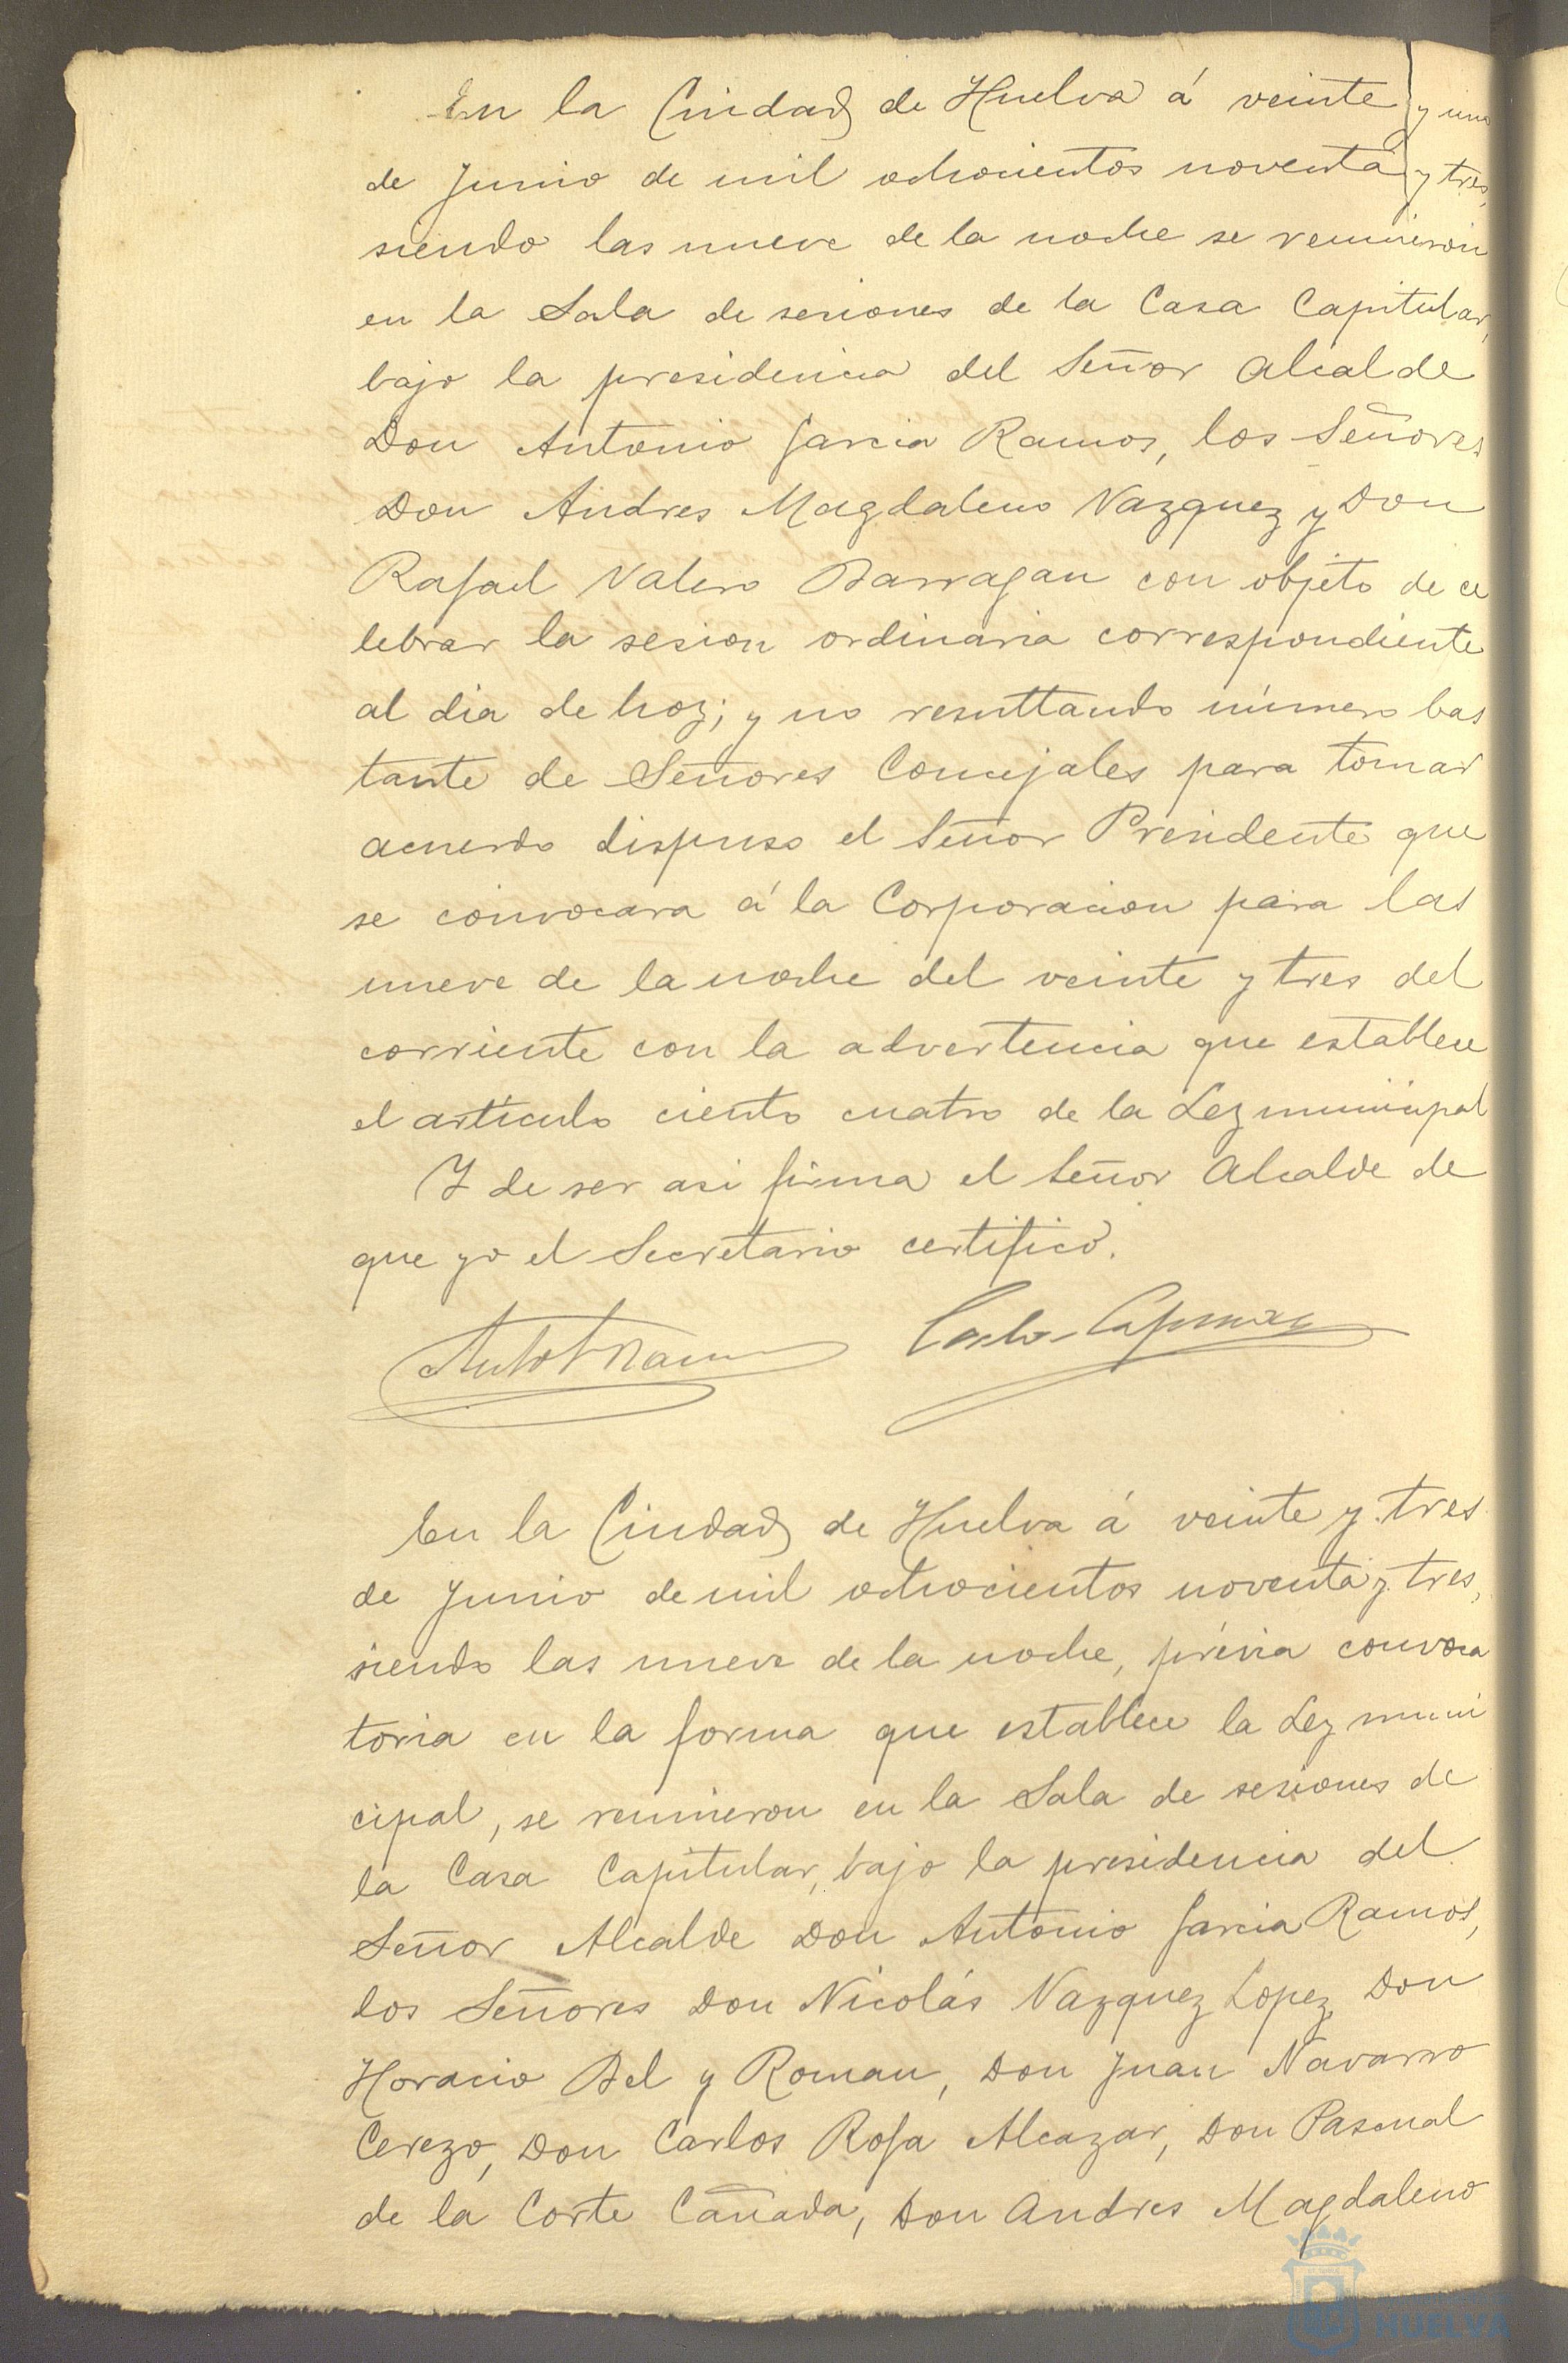 En la Ciudad de Huelva á veinte y uno
de Junio de mil ochocientos noventa y tres,
siendo las nueve de la noche se reunieron
en la Sala de sesiones de la Casa Capitular,
bajo la presidencia del Señor Alcalde
Don Antonio Garcia Ramos, los Señores
Don Andres Magdaleno Vazquez y Don
Rafael Valero Barragan con objeto de ce
lebrar la sesion ordinaria correspondiente
al dia de hoy; y no resultando número bas
tante de Señores Concejales para tomar
acuerdo dispuso el Señor Presidente que
se convocara á la Corporacion para las
nueve de la noche del veinte y tres del
corriente con la advertencia que establece
el artículo ciento cuatro de la Ley municipal
Y de ser asi firma el Señor Alcalde de
que yo el Secretario certifico.
En la Ciudad de Huelva á veinte y tres
de Junio de mil ochocientos noventa y tres,
siendo las nueve de la noche, prévia convoca
toria en la forma que establece la Ley muni
cipal, se reunieron en la Sala de sesiones de
la Casa Capitular, bajo la presidencia del
Señor Alcalde Don Antonio Garcia Ramos,
los Señores Don Nicolás Vazquez Lopez, Don
Horacio Bel y Roman, Don Juan Navarro
Cerezo, Don Carlos Rofa Alcazar, Don Pascual
de la Corte Cañada, Don Andres Magdaleno
HUELVA